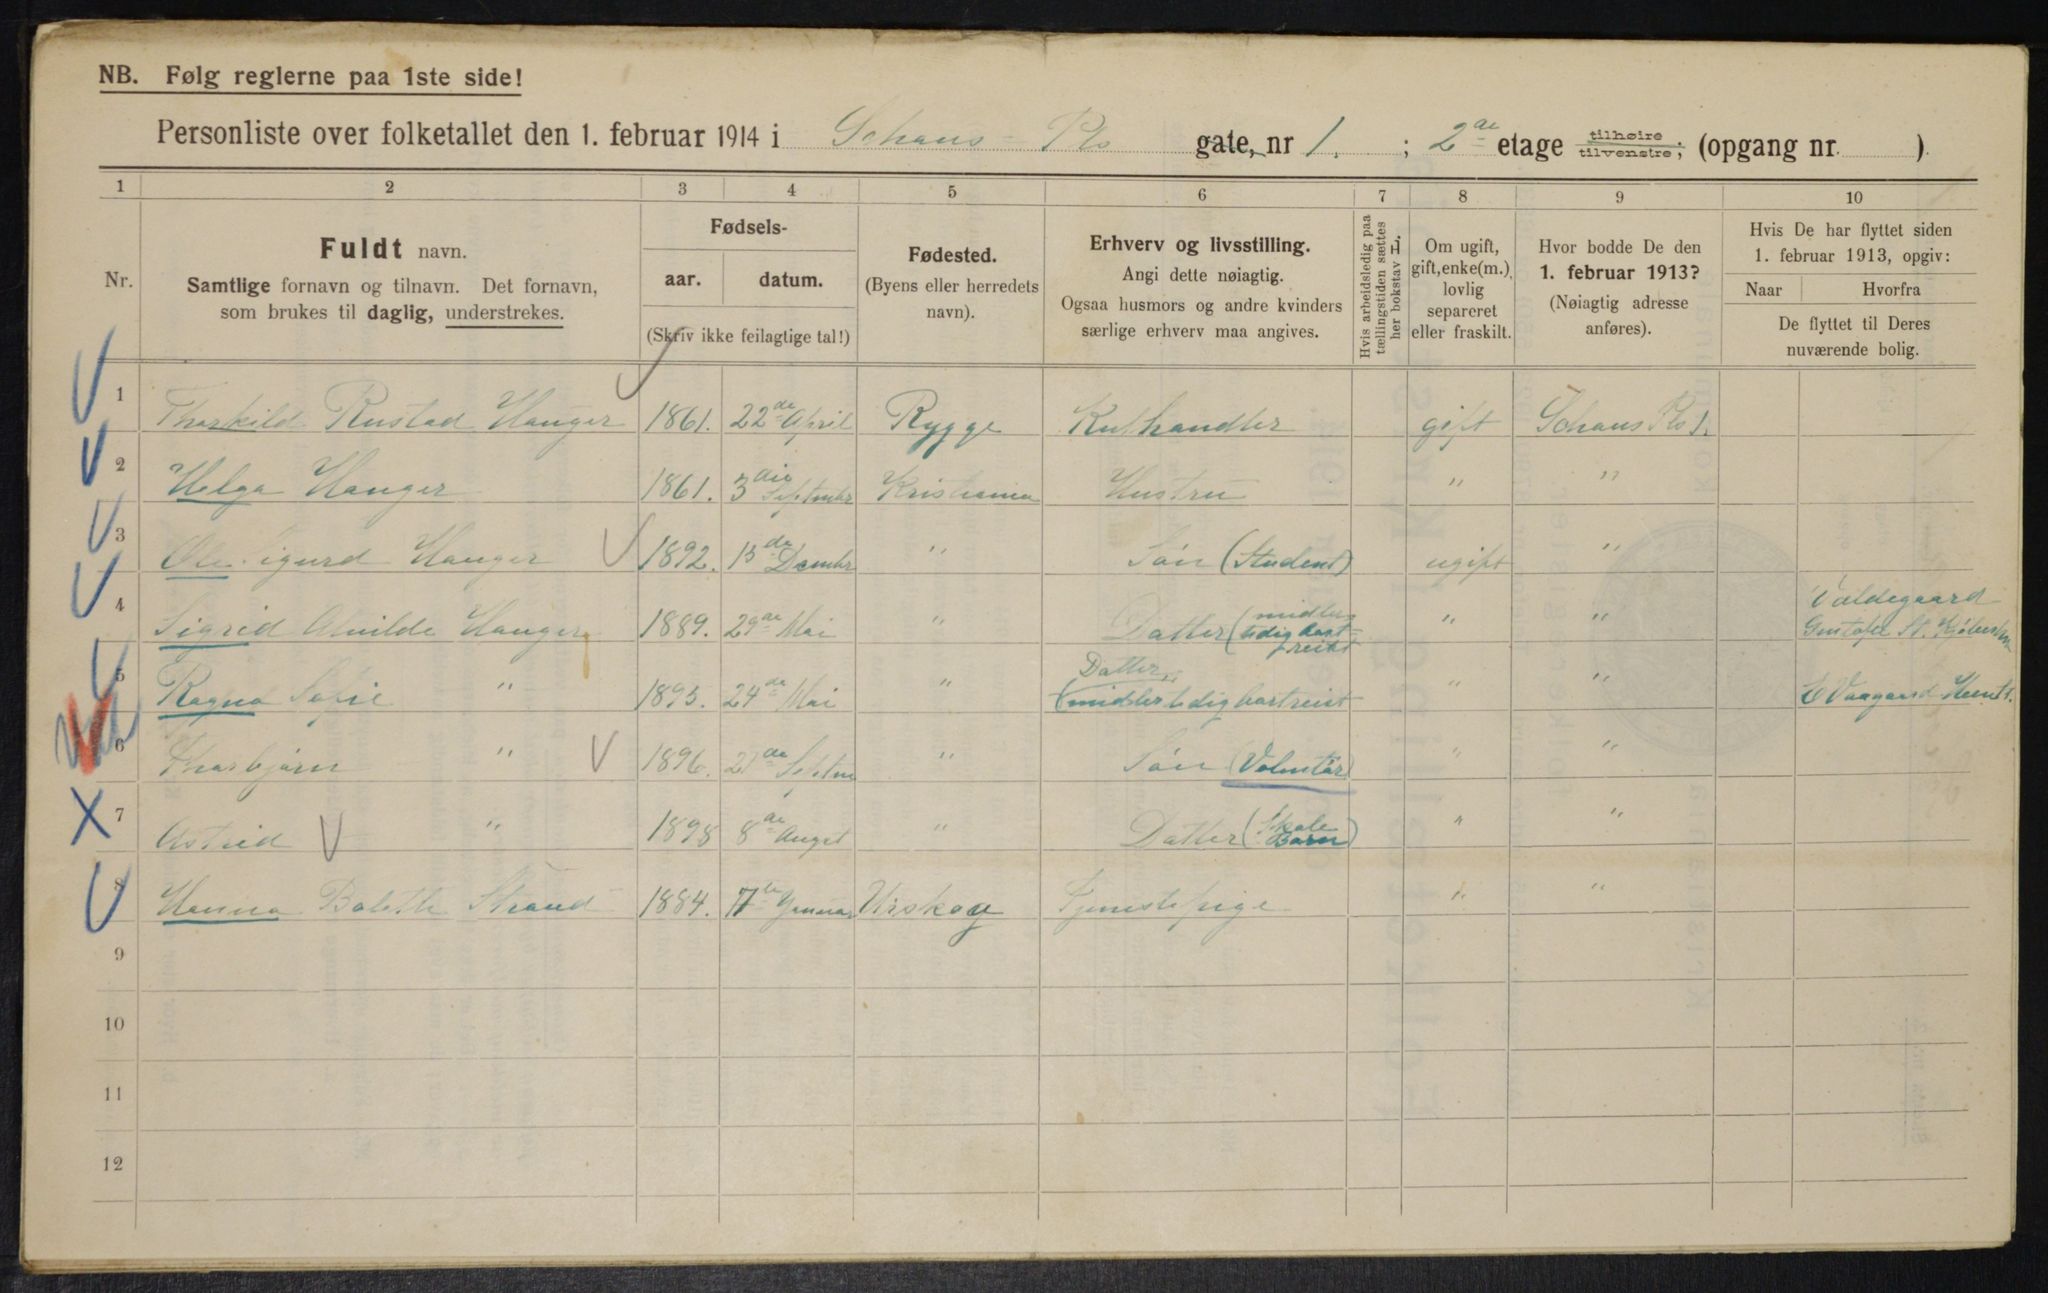 NB. Følg reglerne paa 1ste side!
Personliste over folketallet den 1. februar 1914 i Schous = Pls gate, nr 1. ; 2 den etage tilhøire / tilvenstre; (opgang nr. ).
1 2 3 4 5 6 7 8 9 10
Nr.
Fuldt navn.
Samtlige fornavn og tilnavn. Det fornavn,
som brukes til daglig, understrekes.
Fødsels-
aar. datum.
(Skriv ikke feilagtige tal!)
Fødested.
(Byens eller herredets
navn).
Erhverv og livsstilling.
Angi dette nøiagtig.
Ogsaa husmors og andre kvinders
særlige erhverv maa angives.
Hvis arbeidsledig paa
tællingstiden sættes
her bokstav L.
Om ugift,
gift, enke(m.),
lovlig
separeret
eller fraskilt.
Hvor bodde De den
1. februar 1913?
(Nøiagtig adresse
anføres).
Hvis De har flyttet siden
1. februar 1913, opgiv:
Naar Hvorfra
De flyttet til Deres
nuværende bolig.
1 Thorkild Rustad Hauger 1861. 22de April Rygge Kulhandler gift Schous Pls 1.
2 Helga Hauger 1861. 3die Septmbr Kristiania Hustru " "
3 Ole Sigurd Hauger 1892. 15de Dcmbr " Søn (Student) ugift "
4 Sigrid Alvilde Hauger 1889. 29de Mai " Datter (midler tidig bort reist " " Valdegaard
5 Ragna Sofie " 1895. 24de Mai " Datter (midlertidig bortreist " "
6 Thorbjørn " 1896. 21de Septm " Søn (Volontør) " "
7 Astrid " 1898 8de Augst " Datter (Skole Barn) " "
8 Hanna Bolette Strand 1884. 7de Januar Urskog Tjenestepige " "
9
10
11
12